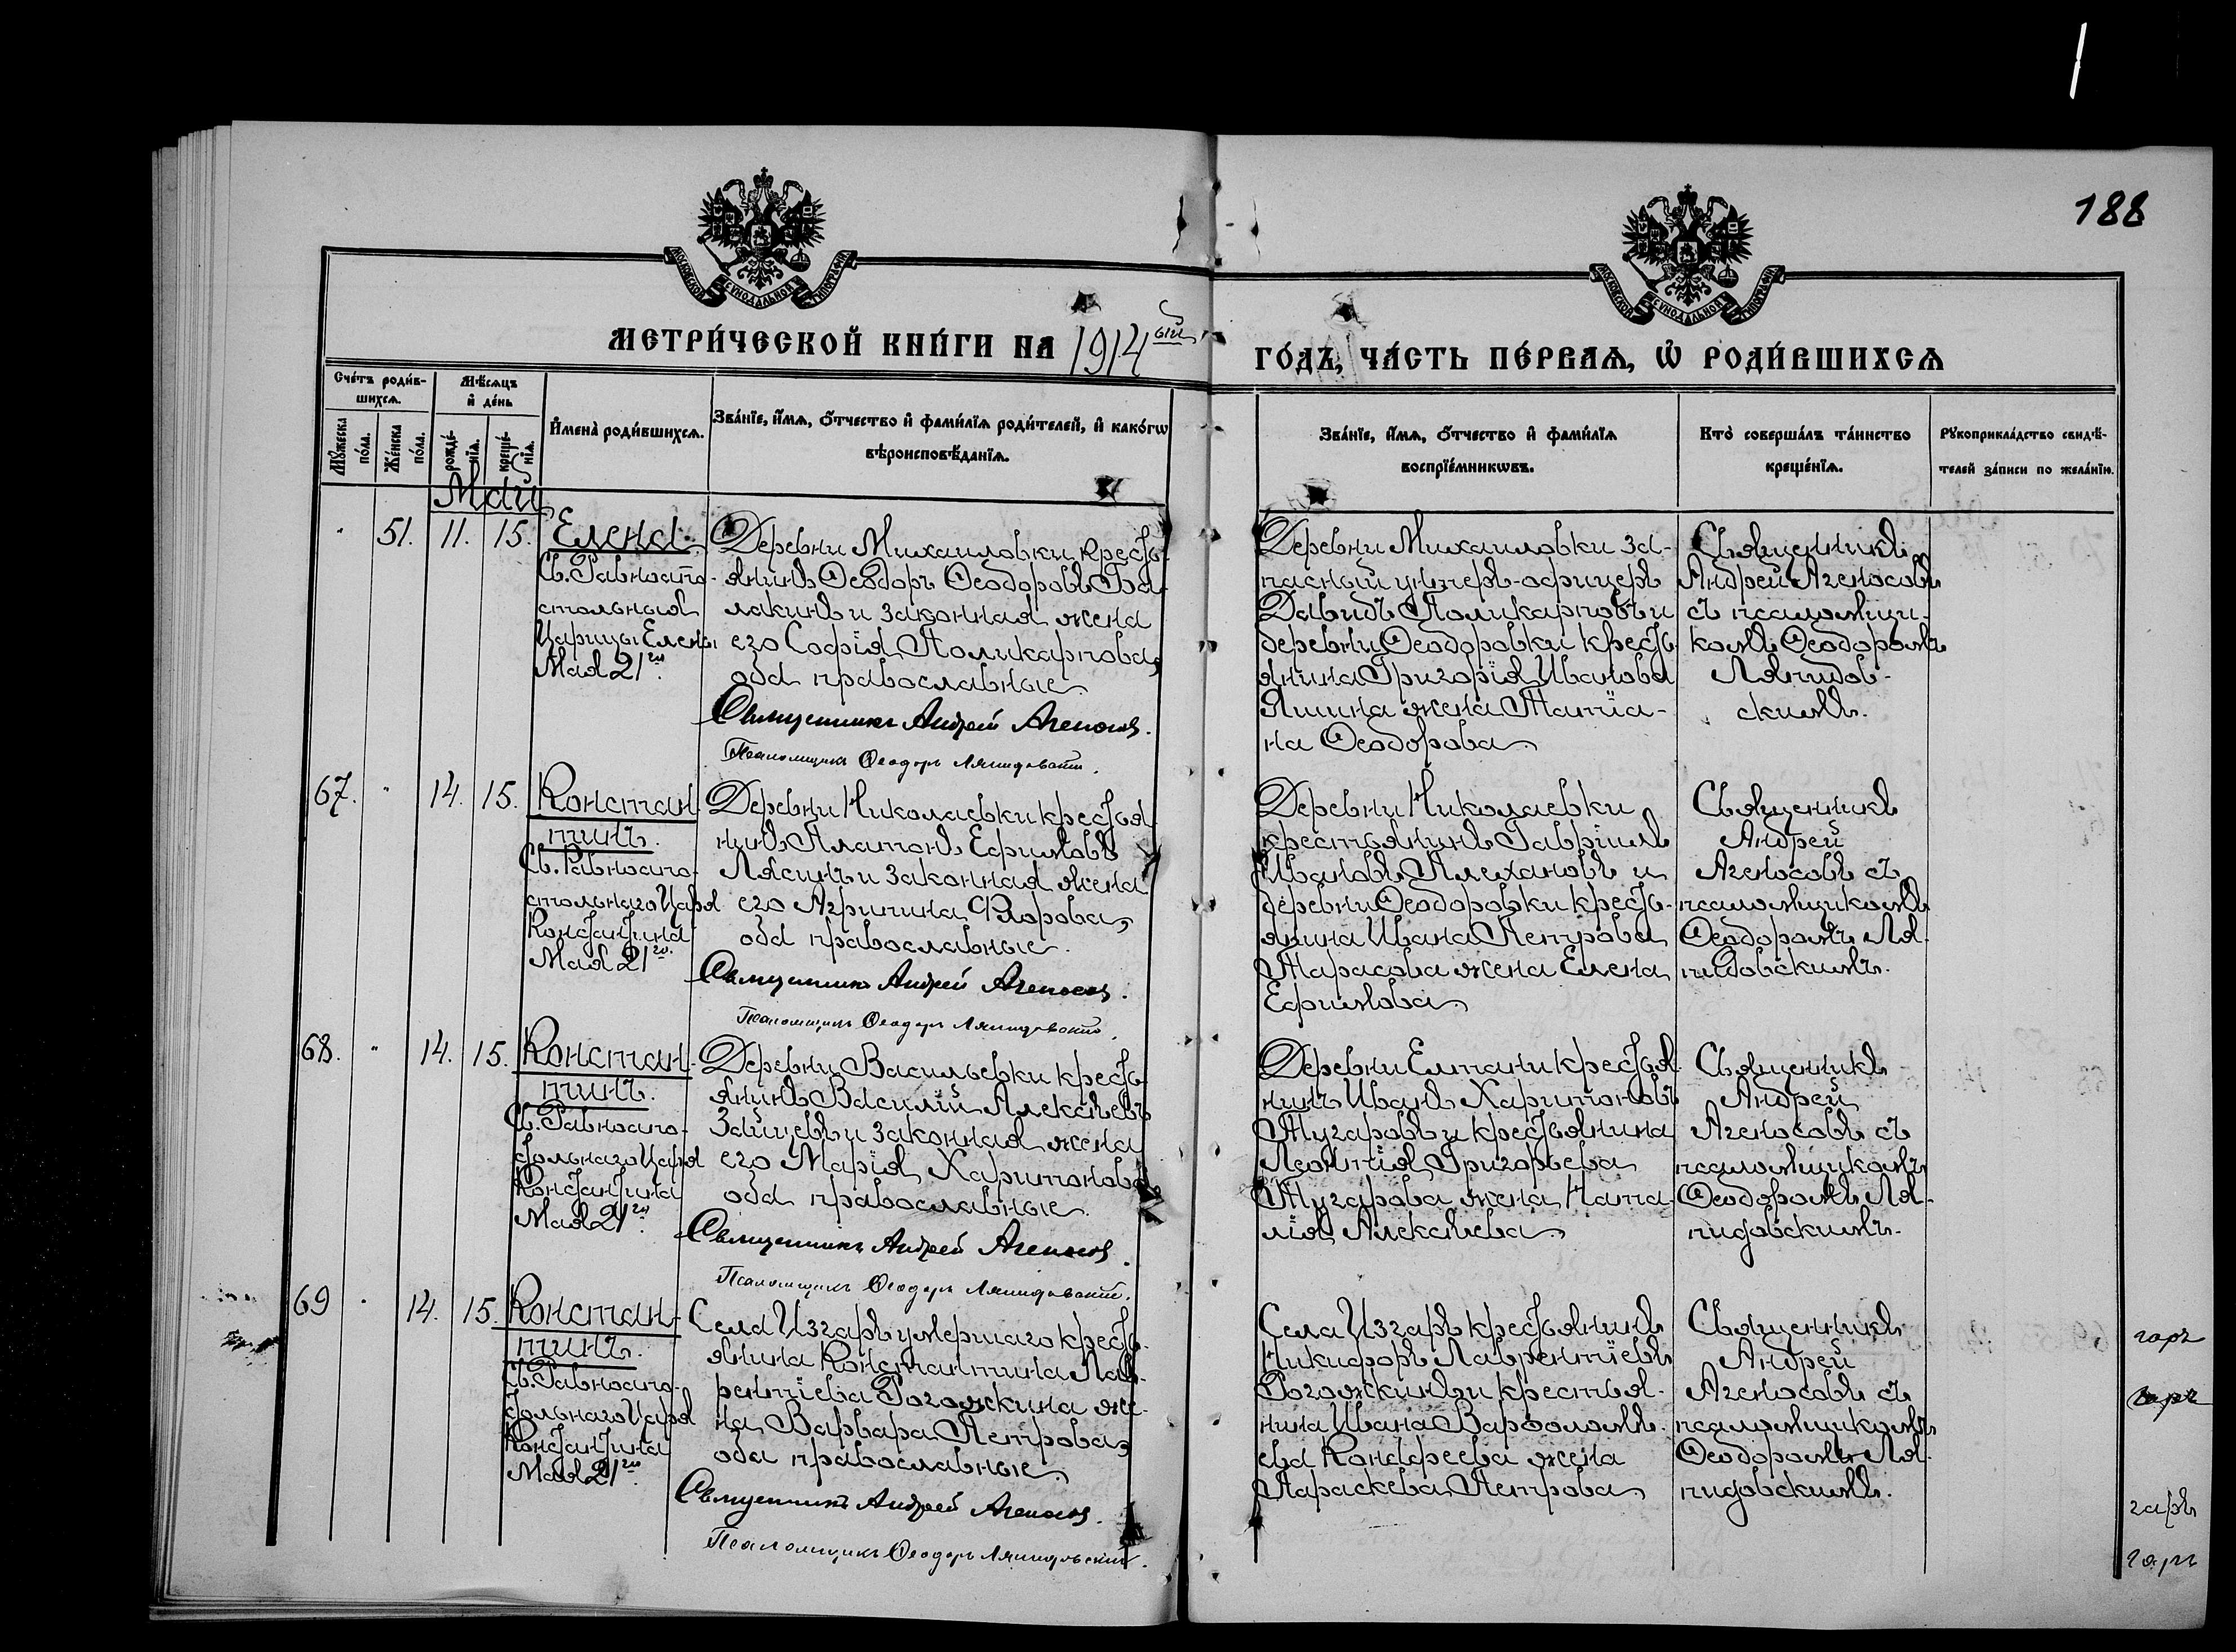 188
МОСКОВСКОЙ СѴНОДАЛЬНОЙ ТИПОГРАФІИ
МОСКОВСКОЙ СѴНОДАЛЬНОЙ ТИПОГРАФІИ
МЕТРИ́ЧЕСКОЙ КНИ́ГИ НА 1914ый
ГО́ДЪ, ЧА́СТЬ ПЕ́РВАЯ, Ѡ РОДИ́ВШИХСЯ
Сче́тъ роди́в-
шихся.
Мѣ́сяцъ
и де́нь
Му́жеска
по́ла.
Же́нска
по́ла.
рожде́-
нія.
креще́-
нія.
Имена̀ роди́вшихся.
Зва́ніе, и́мя, о́тчество и фами́лія роди́телей, и како́гѡ
вѣроисповѣ́данія.
Зва́ніе, и́мя, о́тчество и фами́лія
воспріе́мникѡвъ.
Кто̀ соверша́лъ та́инство
креще́нія.
Рукоприкла́дство свидѣ́-
телей за́писи по жела́нію.
Май
51. 11. 15.
Елена
Св. Равноапо-
стольныя
Царицы Елены
Мая 21го.
Деревни Михаиловки кресть-
янинъ Ѳеодоръ Ѳеодоровъ Ба-
лакинъ и законная жена
его Софія Поликарпова,
оба православные
Священникъ Андрей Агеносов.
Псаломщикъ Ѳеодоръ Ляпидовскій.
Деревни Михаиловки за-
пасный унтеръ-офицеръ
Давидъ Поликарповъ и
деревни Ѳеодоровки кресть-
янина Григорія Иванова
Яшина жена Татіа-
на Ѳеодорова
Священникъ
Андрей Агеносовъ
съ псаломщи-
комъ Ѳеодоромъ
Ляпидов-
скимъ.
67. 14. 15.
Констан-
тинъ.
Св. Равноапо-
стольнаго Царя
Константина
Мая 21го.
Деревни Николаевки крестья-
нинъ Платонъ Ефимовъ
Лясинъ и законная жена
его Агрипина Флорова,
оба православные.
Священникъ Андрей Агеносов.
Псаломщикъ Ѳеодоръ Ляпидовскій.
Деревни Николаевки
крестьянинъ Гавріилъ
Ивановъ Плехановъ и
деревни Ѳеодоровки кресть-
янина Ивана Петрова
Тарасова жена Елена
Ефимова
Священникъ
Андрей
Агеносовъ съ
псаломщикомъ
Ѳеодоромъ Ля-
пидовскимъ.
68. 14. 15.
Констан-
тинъ.
Св. Равноапо-
стольнаго Царя
Константина
Мая 21го.
Деревни Васильевки кресть-
янинъ Василій Алексѣевъ
Зайцевъ и законная жена
его Марія Харитонова
оба православные.
Священникъ Андрей Агеносов.
Псаломщикъ Ѳеодоръ Ляпидовскій.
Деревни Елтани крестья-
нинъ Иванъ Харитоновъ
Тугаровъ и крестьянина
Леонтія Григорьева
Тугарова жена Ната-
лія Алексѣева
Священникъ
Андрей
Агеносовъ съ
псаломщикомъ
Ѳеодоромъ Ля-
пидовскимъ.
69 14. 15.
Констан-
тинъ.
Св. Равноапо-
стольнаго Царя
Константина
Мая 21го.
Села Изгаръ умершаго кресть-
янина Константина Лав-
рентіева Рогожкина же-
на Варвара Петрова,
оба православные
Священникъ Андрей Агеносов.
Псаломщикъ Ѳеодоръ Ляпидовскій.
Села Изгаръ крестьянинъ
Никифоръ Лаврентіевъ
Рогожкинъ и крестья-
нина Ивана Варфоломѣ-
ева Конфреева жена
Параскева Петрова
Священникъ
Андрей
Агеносовъ съ
псаломщикомъ
Ѳеодоромъ Ля-
пидовскимъ.
гаръ
гаръ